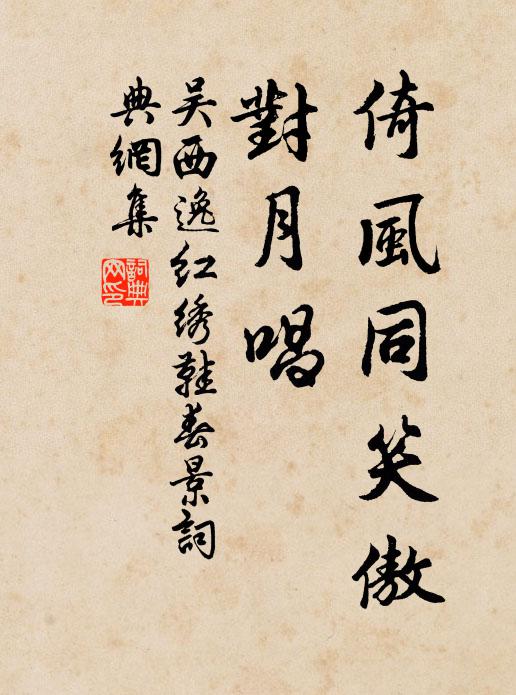 倚風同笑傲
對月唱
吴西逸红绣鞋春景詞
典網集
詞典
网印